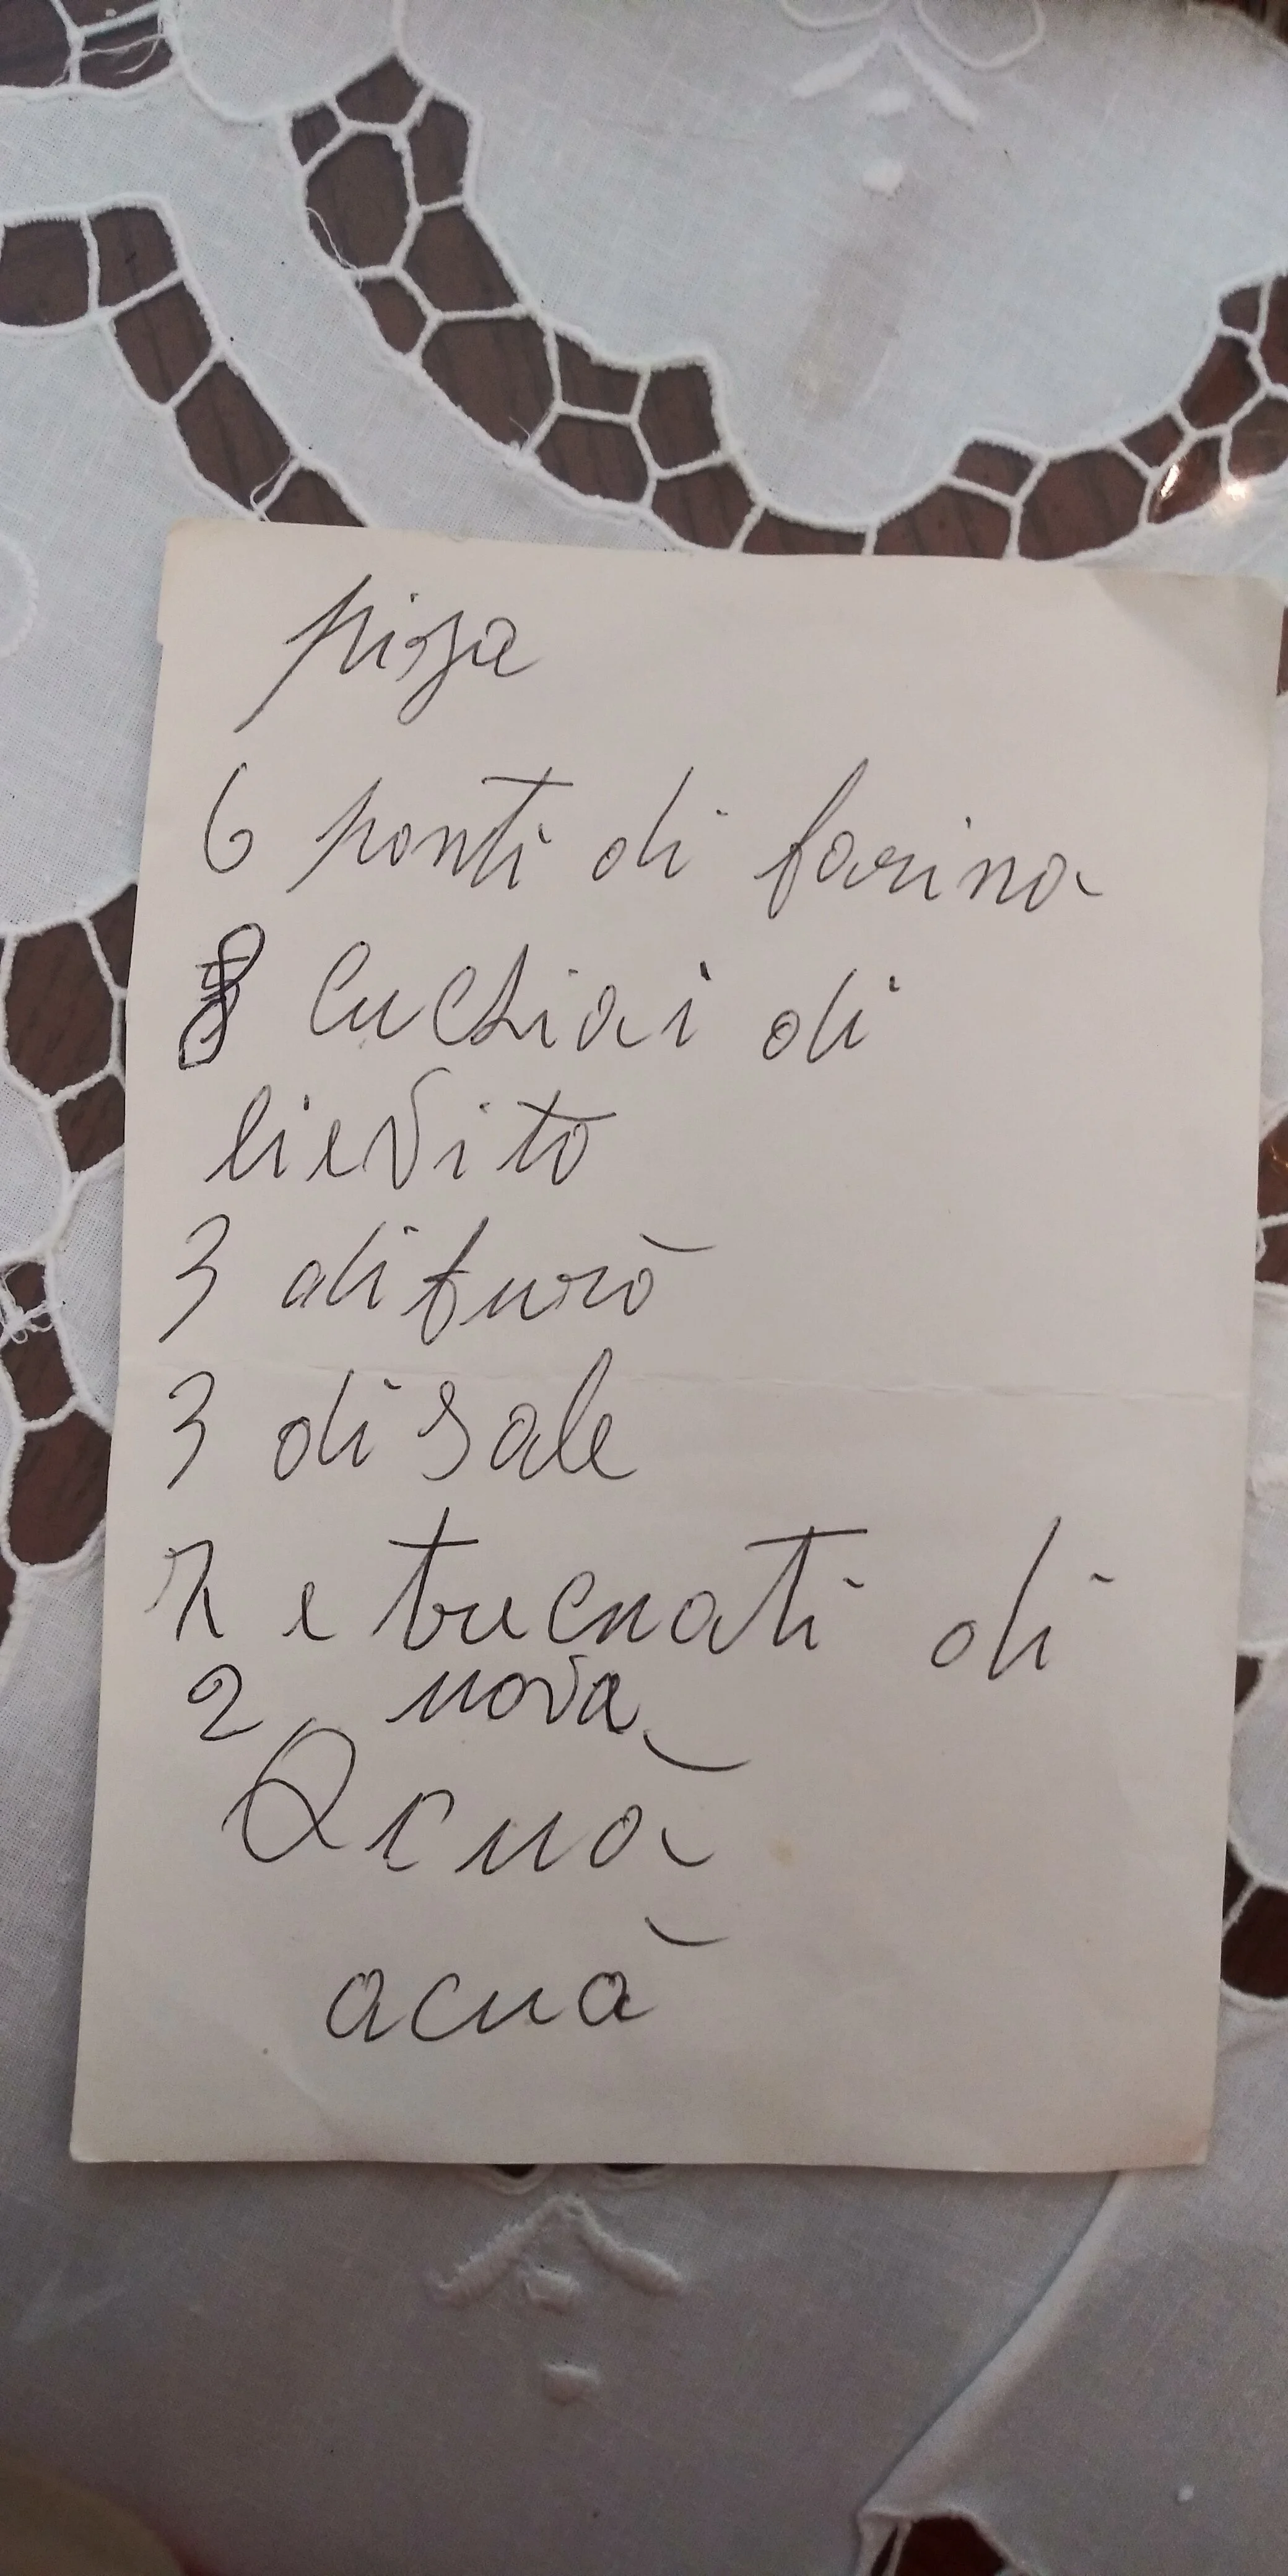 pizza
6 ponti di farina
8 cuchiai di
lievito
3 di furò
3 di sale
1 e trecnati di
2 nova
Acuà
acuà